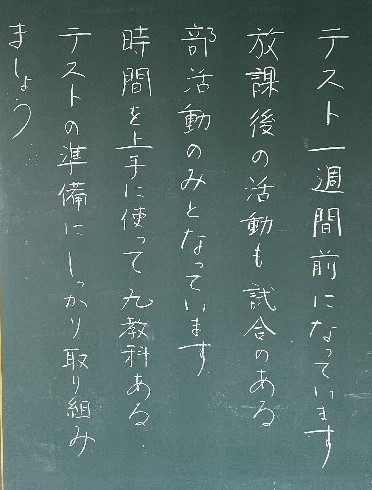 テスト一週間前になっています
放課後の活動も試合のある
部活動のみとなっています
時間を上手に使って九教科ある
テストの準備にしっかり取り組み
ましょう